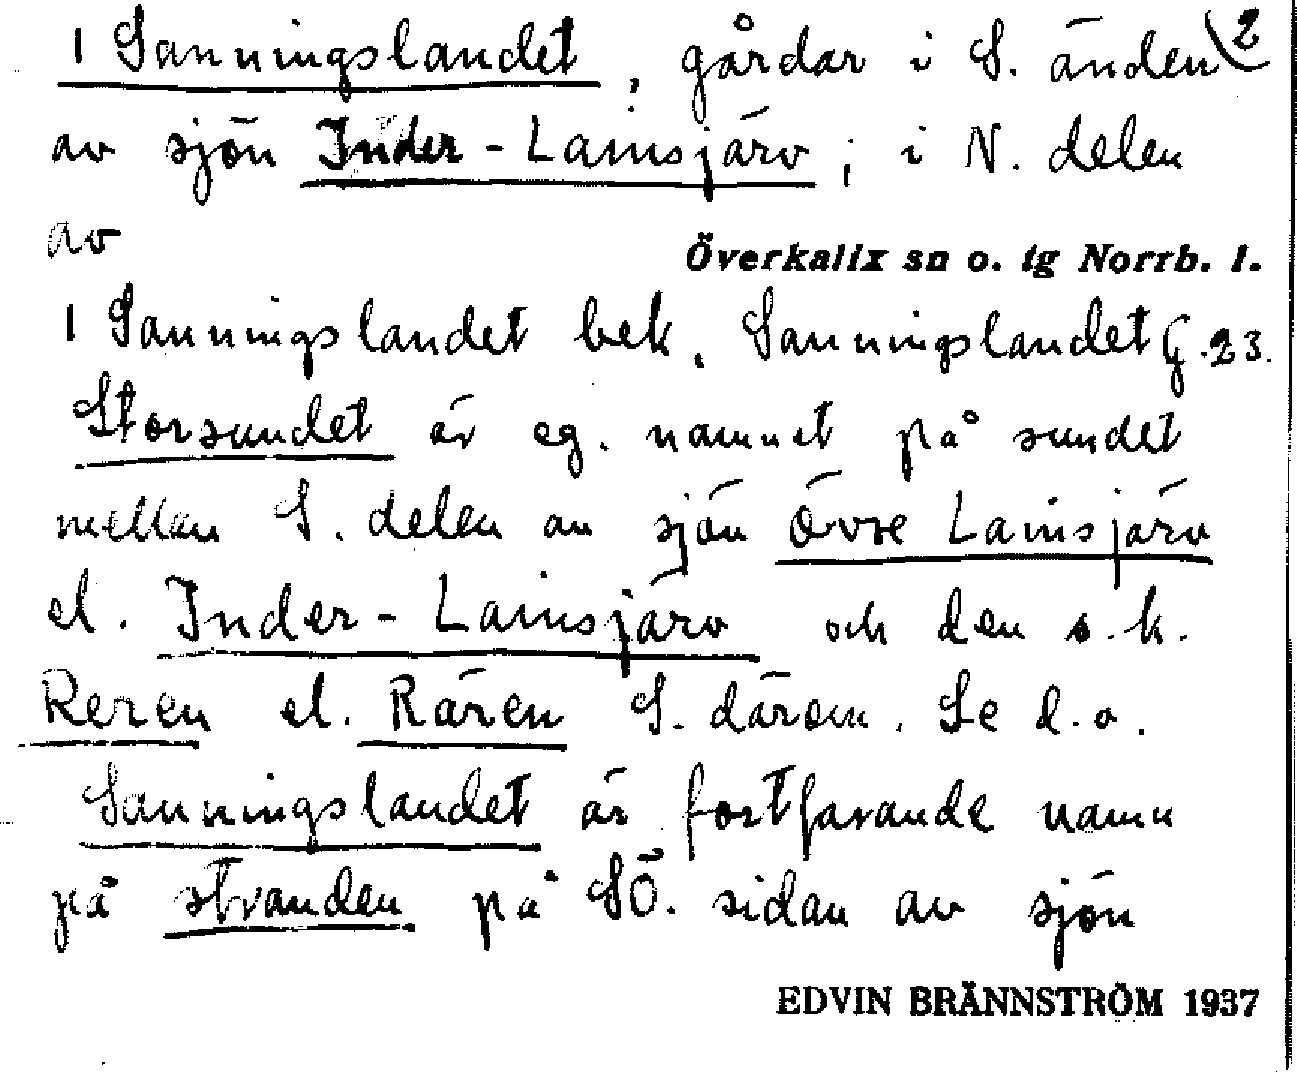 1 Sanningslandet, gårdar i S. änden 2
av sjön Inder-Lainsjärv; i N. delen
av
Överkalix sn o. tg Norrb. l.
1 Sanningslandet bek. Sanningslandet G. 23.
Storsundet är eg. namnet på sundet
mellan S. delen av sjön Övre Lainsjärv
el. Inder-Lainsjärv och den s.k.
Reren el. Rären S. därom. Se d.o.
Sanningslandet är fortfarande namn
på stranden på SÖ. sidan av sjön
EDVIN BRÄNNSTRÖM 1937